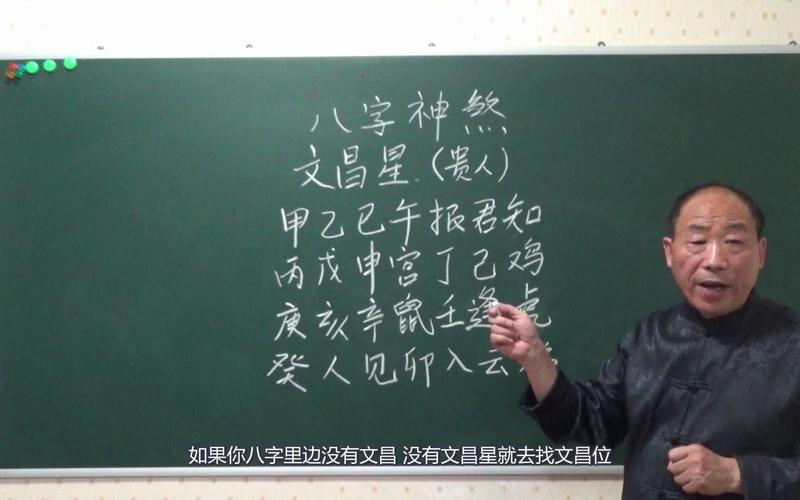 八字神煞
文昌星(贵人)
甲乙巳午报君知
丙戊申宫丁己鸡
庚亥辛鼠壬逢虎
癸人见卯入云
如果你八字里边没有文昌 没有文昌星就去找文昌位